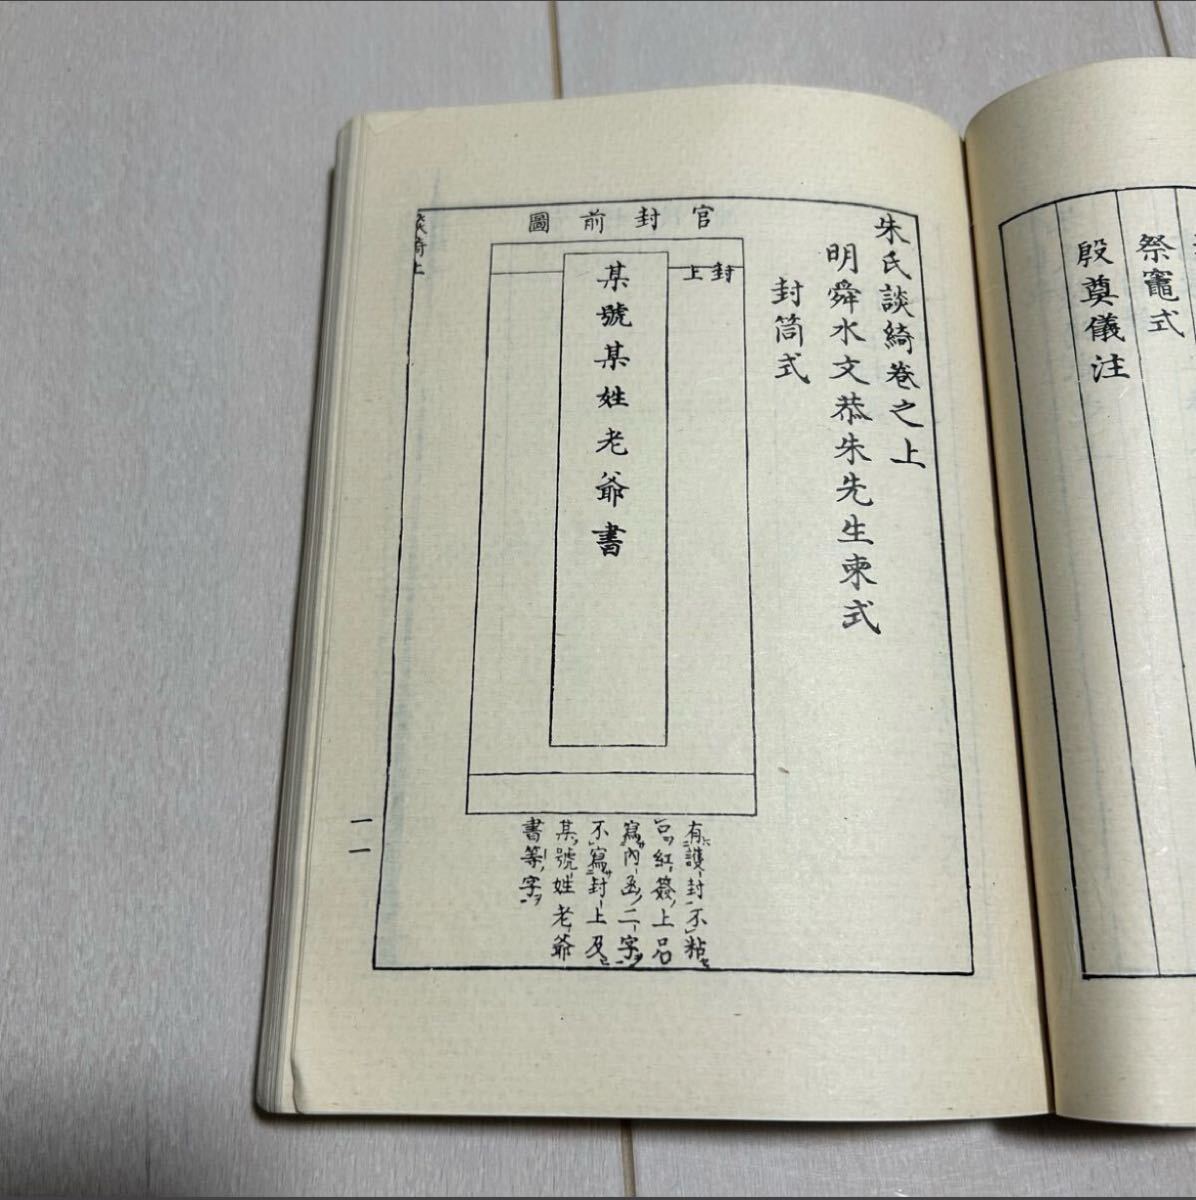 祭竈式
殷奠儀注
朱氏談綺卷之上
明舜水文恭朱先生柬式
封筒式
官封前圖
封上
某號某姓老爺書
有護封不粘
口紅簽上只
寫內函二字
不寫封上及
某號姓老爺
書等字
一一